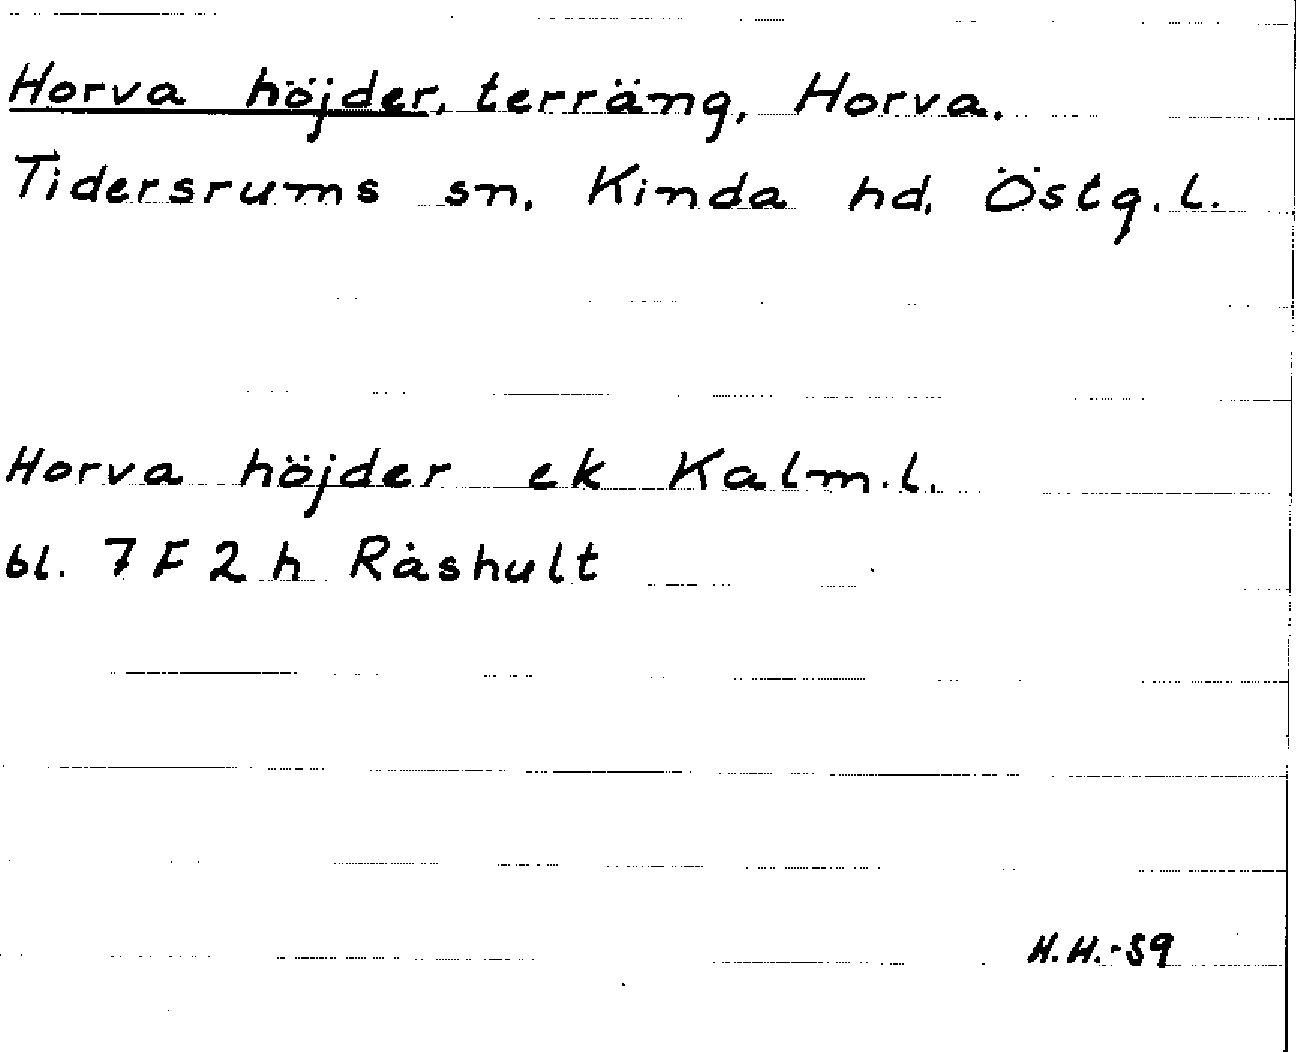 Horva höjder, terräng, Horva.
Tidersrums sn, Kinda hd, Östg.l.
Horva höjder ek Kalm.l.
bl. 7 F 2 h Råshult
H.H.-59